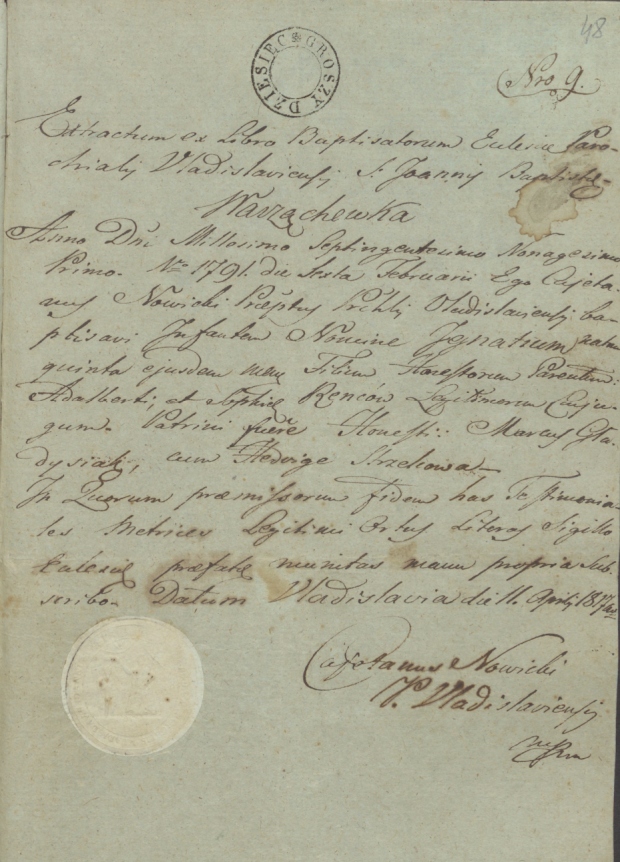 48
DZIESIĘC GROSZY
Nro 9.
Extractum ex Libro Baptisatorum Eclesiæ Paro-
chialis Vladislaviensis S. Joannis Baptistæ
Warząchewka
Anno Dñi Millesimo Septingentesimo Nonagesimo
Primo. No 1791. die Sexta Februarii Ego Cajeta-
nus Nowicki Vladislaviensis ba-
ptisavi Infantem Nomine Ignatium natum
quinta ejusdem mens Filium Honestorum Parentum:
Adalberti, et Sophiæ Renców Legitimorum Conju-
gum. Patrini fuere Honesti: Marcus Gła-
dysiak, cum Hedvige Strzekowa
In Quorum præmissorum fidem has Testimonia-
les Metrices Legitimi Ortus Literas Sigillo
Eclesiæ præfatæ munitas manu propria Sub-
scribo. Datum Vladislavia die 11. Aprilis
Cajetanus Nowicki
Vladislaviensis
mpr